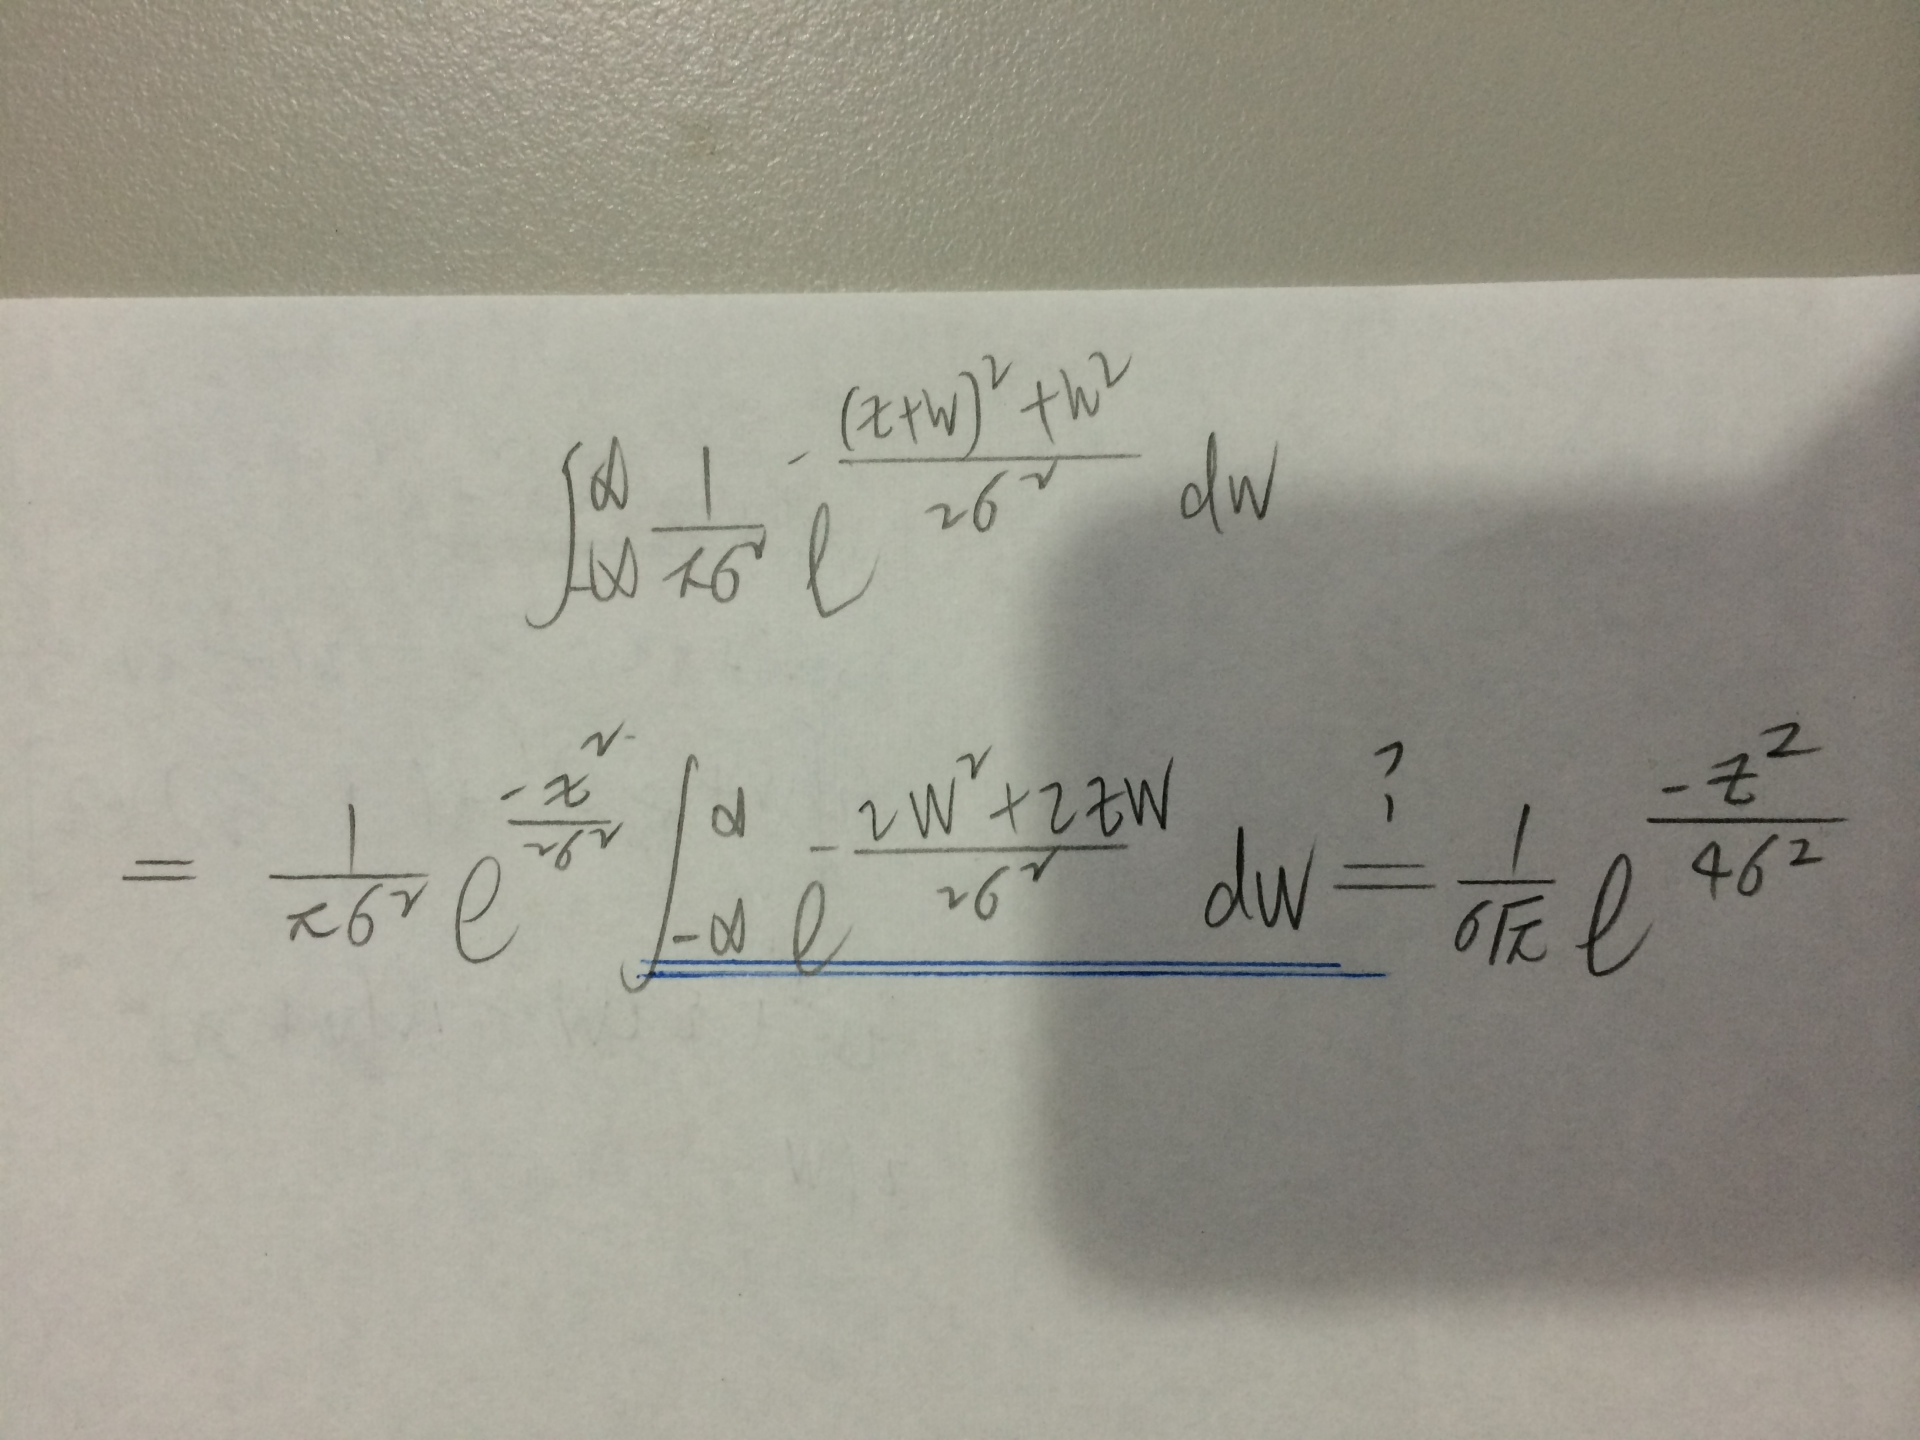 ∫_{-∞}^{∞} \frac{1}{πσ^2} e^{-\frac{(z+w)^2+w^2}{2σ^2}} dw
= \frac{1}{πσ^2} e^{\frac{-z^2}{2σ^2}} ∫_{-∞}^{∞} e^{-\frac{2w^2+2zw}{2σ^2}} dw \overset{?}{=} \frac{1}{σ\sqrt{π}} e^{\frac{-z^2}{4σ^2}}